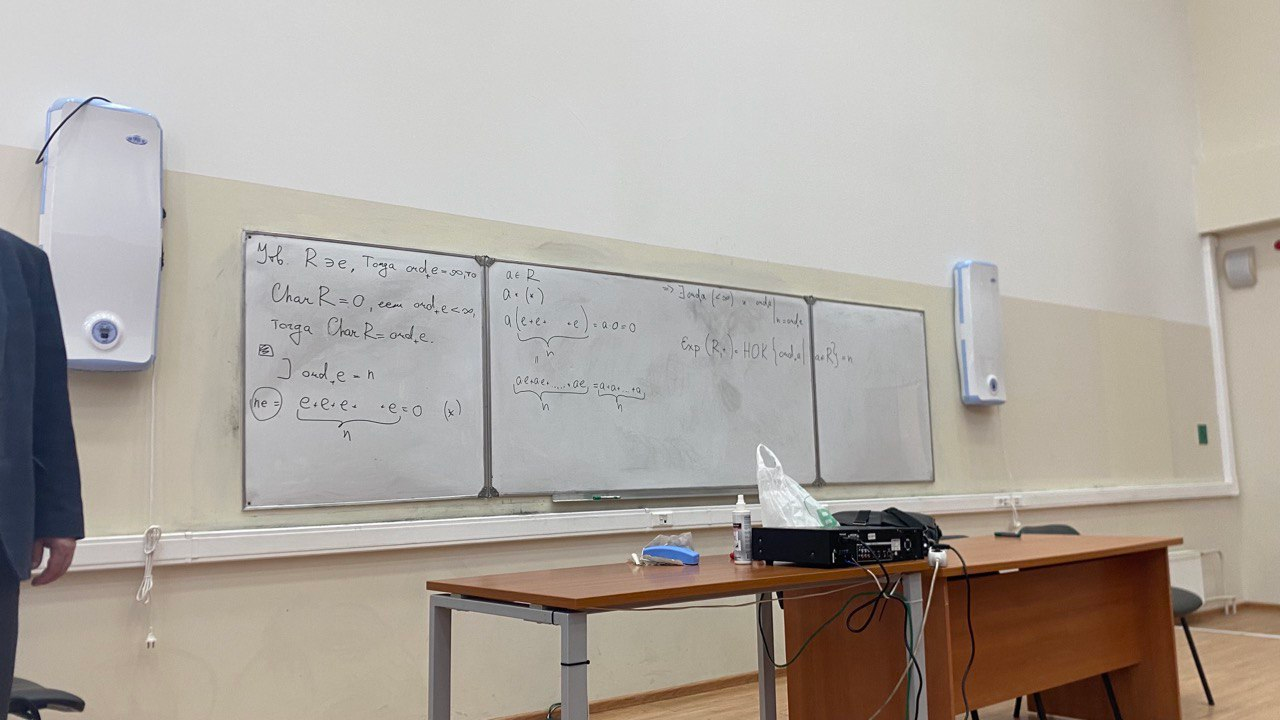 Утв. R∋e, Тогда ord₊e=∞, то
Char R = 0, если ord₊e<∞,
тогда Char R = ord₊e.
] ord₊e = n
ne = e+e+e+ +e = 0 (x)
n
a ∈ R
a·(x)
a(e+e+...+e) = a·0 = 0
n
"
ae+ae+....+ae = a+a+...+a
n n
=> ∃ ord₊a (<∞) и ord₊a | n = ord₊e
Exp(R,+) = НОК {ord₊a | a∈R} = n